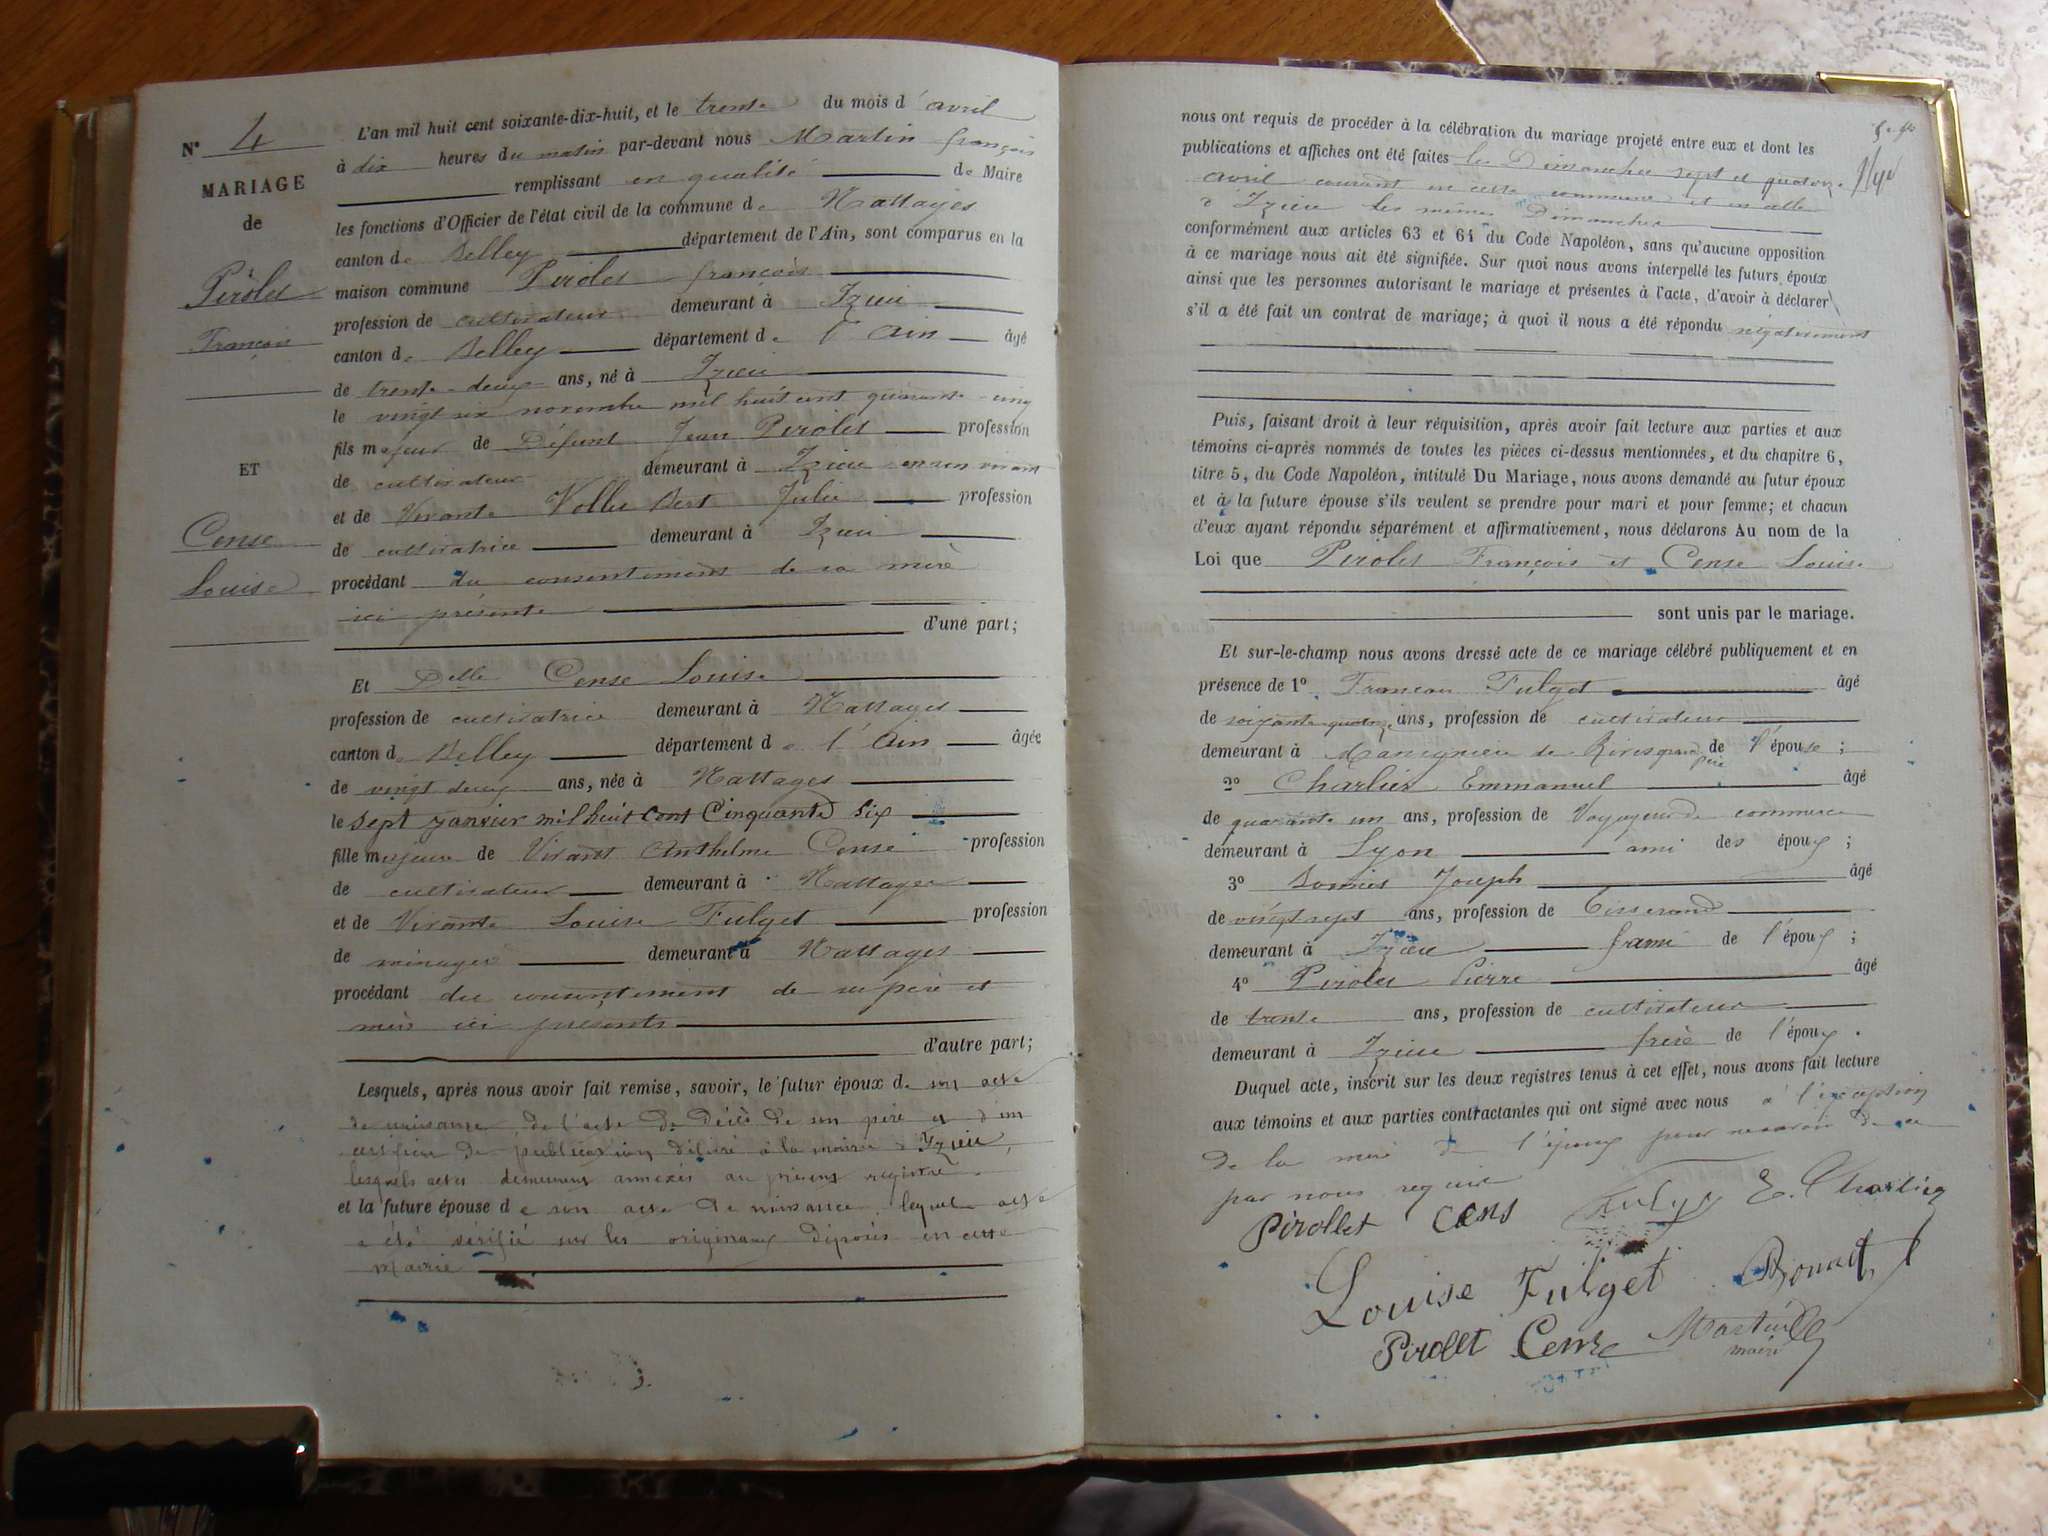 N° 4
MARIAGE
de
Pérolet
François
ET
Cense
Louise
L'an mil huit cent soixante-dix-huit, et le trente du mois d'avril
à dix heures du matin par-devant nous Martin françois
remplissant en qualité de Maire
les fonctions d'Officier de l'état civil de la commune de Nattages
canton de Belley département de l'Ain, sont comparus en la
maison commune Pirolet françois
profession de cultivateur demeurant à Izieu
canton de Belley département de l'Ain âgé
de trente-deux ans, né à Izieu
le vingt six novembre mil huit cent quarante-cinq
fils majeur de Défunt Jean Pirolet profession
de cultivateur demeurant à Izieu en son vivant
et de Vivante Vollet Bert Julie profession
de cultivatrice demeurant à Izieu
procédant du consentement de sa mère
ici présente
d'une part;
Et Delle Cense Louise
profession de cultivatrice demeurant à Nattages
canton de Belley département de l'Ain âgée
de vingt deux ans, née à Nattages
le sept janvier mil huit cent Cinquante Six
fille majeure de Vivant Anthelme Cense profession
de cultivateur demeurant à Nattages
et de Vivante Louise Fulget profession
de ménagère demeurant à Nattages
procédant du consentement de ses père et
mère ici présents
d'autre part;
Lesquels, après nous avoir fait remise, savoir, le futur époux de son acte
de naissance de l'acte de décès de son père et d'un
certificat de publication délivré à la mairie d'Izieu,
lesquels actes demeurent annexés au présent registre.
et la future épouse de son acte de naissance lequel acte
a été vérifié sur les originaux déposés en cette
mairie
nous ont requis de procéder à la célébration du mariage projeté entre eux et dont les
publications et affiches ont été faites les Dimanches sept et quatorze
avril courant en cette commune et en celle
d'Izieu les mêmes Dimanches
conformément aux articles 63 et 64 du Code Napoléon, sans qu'aucune opposition
à ce mariage nous ait été signifiée. Sur quoi nous avons interpellé les futurs époux
ainsi que les personnes autorisant le mariage et présentes à l'acte, d'avoir à déclarer
s'il a été fait un contrat de mariage; à quoi il nous a été répondu négativement
Puis, faisant droit à leur réquisition, après avoir fait lecture aux parties et aux
témoins ci-après nommés de toutes les pièces ci-dessus mentionnées, et du chapitre 6,
titre 5, du Code Napoléon, intitulé Du Mariage, nous avons demandé au futur époux
et à la future épouse s'ils veulent se prendre pour mari et pour femme; et chacun
d'eux ayant répondu séparément et affirmativement, nous déclarons Au nom de la
Loi que Pirolet François et Cense Louise
sont unis par le mariage.
Et sur-le-champ nous avons dressé acte de ce mariage célébré publiquement et en
présence de 1° François Fulget âgé
de soixante-quatorze ans, profession de cultivateur
demeurant à de Rives grand père de l'épouse;
2° Charlier Emmanuel âgé
de quarante un ans, profession de Voyageur de commerce
demeurant à Lyon ami des époux;
3° Joseph âgé
de vingt sept ans, profession de Tisserand
demeurant à Izieu ami de l'époux;
4° Pirolet Pierre âgé
de trente ans, profession de cultivateur
demeurant à Izieu frère de l'époux.
Duquel acte, inscrit sur les deux registres tenus à cet effet, nous avons fait lecture
aux témoins et aux parties contractantes qui ont signé avec nous à l'exception
de la mère de l'époux pour ne savoir de ce
par nous requise
Pirollet Cens Fulget E. Charlier
Louise Fulget
Pirollet Cense Martin
maire